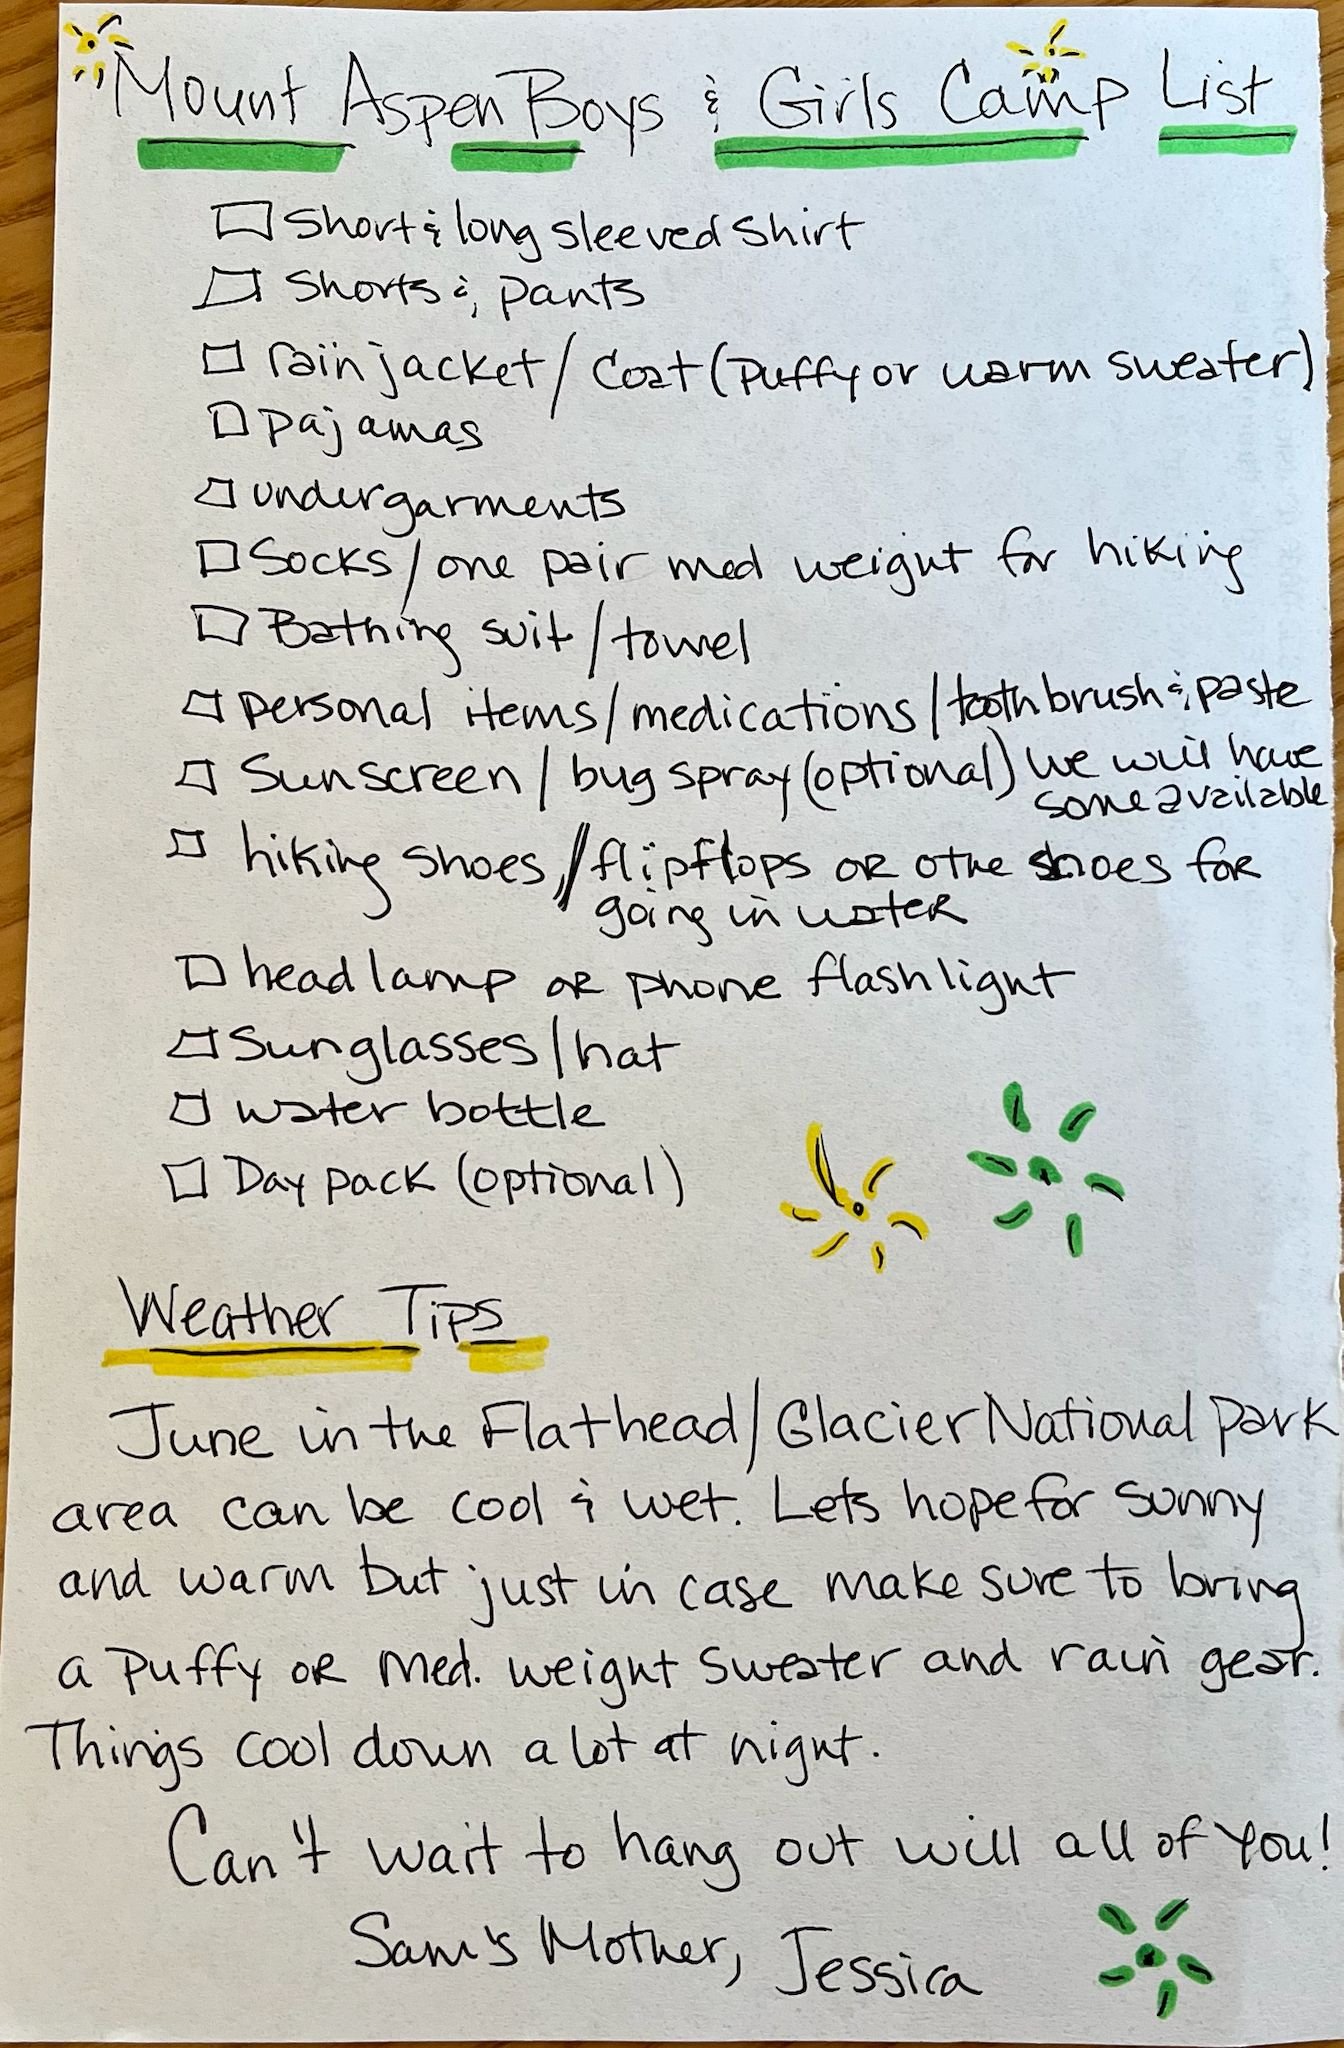 Mount Aspen Boys & Girls Camp List
Short & long sleeved shirt
Shorts & pants
rain jacket / coat (puffy or warm sweater)
pajamas
undergarments
Socks / one pair med weight for hiking
Bathing suit / towel
personal items / medications / toothbrush & paste
Sunscreen / bug spray (optional) We will have
some available
hiking shoes, / flipflops or othe shoes for
going in water
headlamp or phone flashlight
Sunglasses / hat
water bottle
Day pack (optional)
Weather Tips
June in the Flathead / Glacier National Park
area can be cool & wet. Lets hope for sunny
and warm but just in case make sure to bring
a puffy or med. weight sweater and rain gear.
Things cool down a lot at night.
Can't wait to hang out will all of you!
Sam's Mother, Jessica